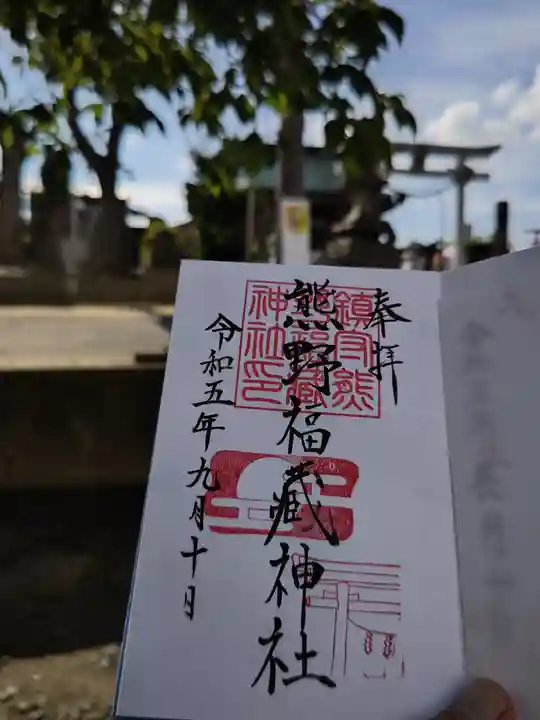 奉拝
熊野福蔵神社
令和五年九月十日
鎮守熊
野福蔵
神社印